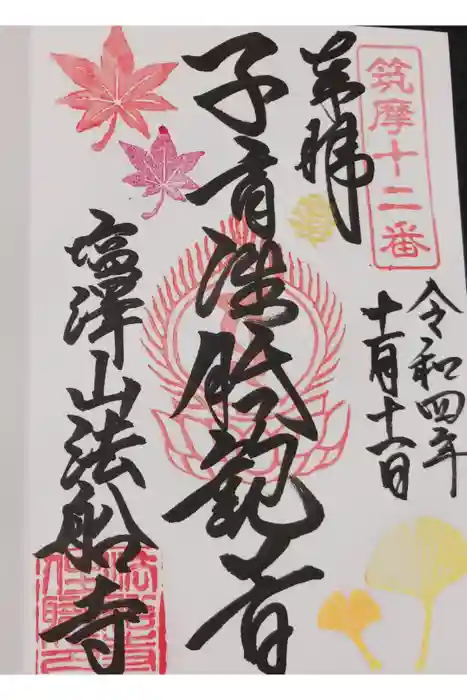 筑摩十二番
奉拝
令和四年
十一月十一日
子育准胝観音
塩澤山法船寺